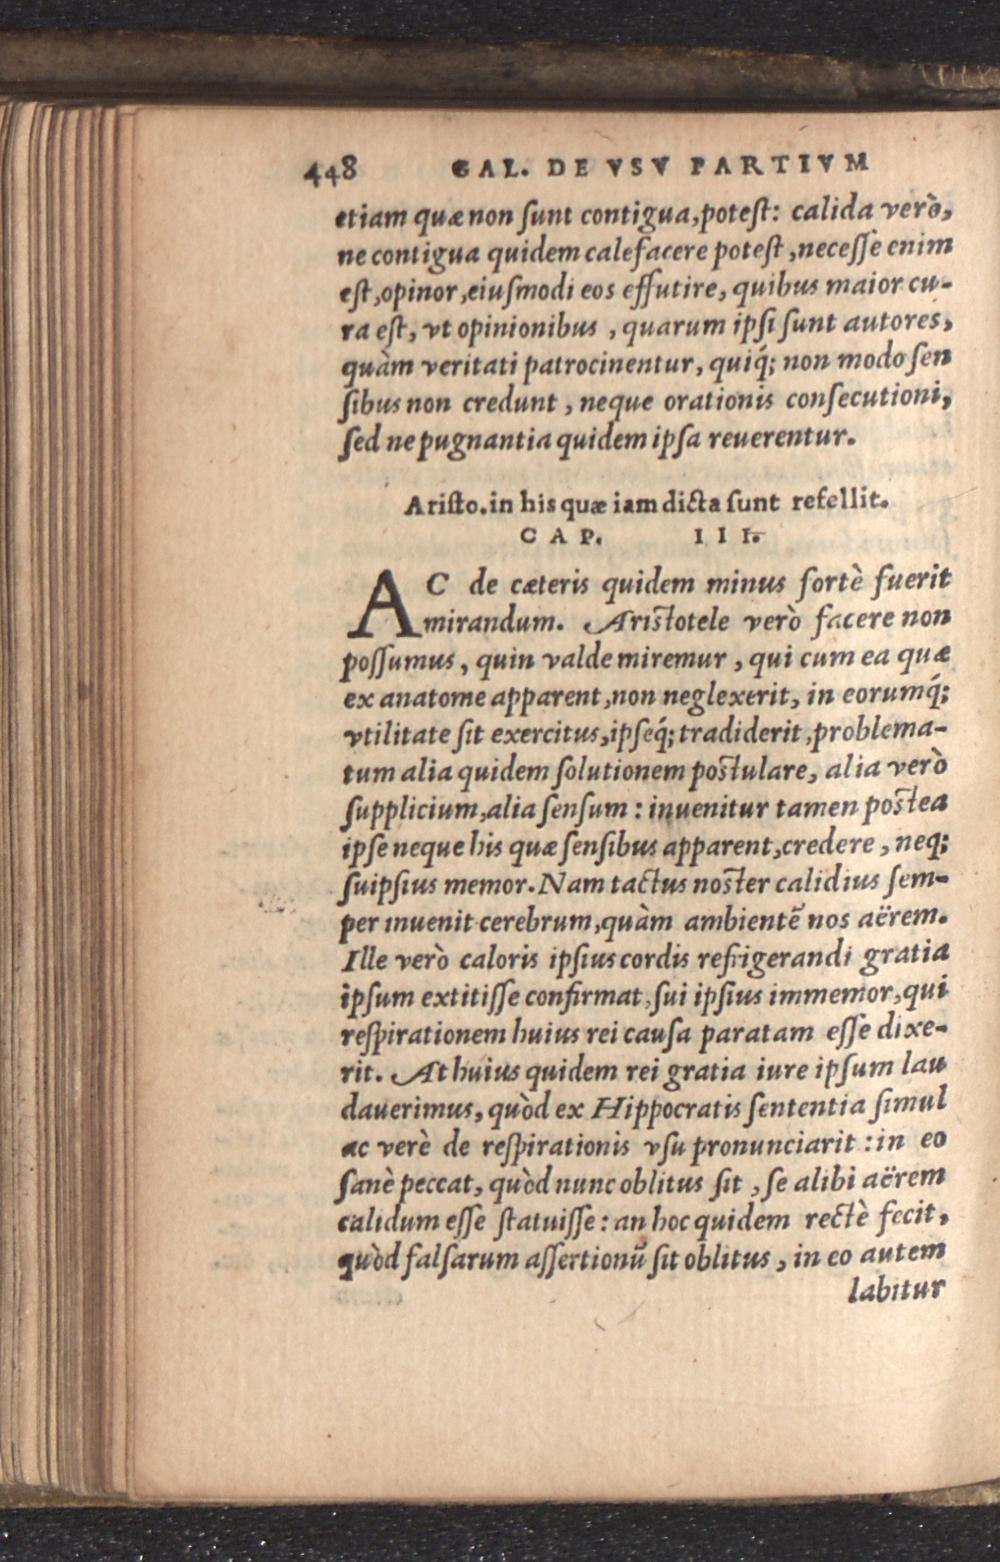 448 GAL. DE VSV PARTIVM
etiam quæ non ſunt contigua,poteſt: calida verò,
ne contigua quidem calefacere poteſt ,neceſſè enim
eſt,opinor,eiuſmodi eos effutire, quibus maior cu-
ra eſt, vt opinionibus , quarum ipſi ſunt autores,
quàm veritati patrocinentur, quiq́; non modo ſen
ſibus non credunt , neque orationis conſecutioni,
ſed ne pugnantia quidem ipſa reuerentur.
Ariſto.in his quæ iam dicta ſunt refellit.
CAP. III.
AC de cæteris quidem minus fortè fuerit
mirandum. Ariſtotele verò facere non
poſſumus, quin valde miremur , qui cum ea quæ
ex anatome apparent,non neglexerit, in eorumq́;
vtilitate ſit exercitus,ipſeq́; tradiderit,problema-
tum alia quidem ſolutionem poſtulare, alia verò
ſupplicium,alia ſenſum : inuenitur tamen poſtea
ipſe neque his quæ ſenſibus apparent,credere , neq;
ſuipſius memor. Nam tactus noſter calidius ſem-
per inuenit cerebrum,quàm ambientẽ nos aërem.
Ille verò caloris ipſius cordis refrigerandi gratia
ipſum extitiſſe confirmat,ſui ipſius immemor,qui
reſpirationem huius rei cauſa paratam eſſe dixe-
rit. At huius quidem rei gratia iure ipſum lau
dauerimus, quòd ex Hippocratis ſententia ſimul
ac verè de reſpirationis vſu pronunciarit : in eo
ſanè peccat, quòd nunc oblitus ſit , ſe alibi aërem
calidum eſſe ſtatuiſſe : an hoc quidem rectè fecit,
quòd falſarum aſſertionũ ſit oblitus , in eo autem
labitur